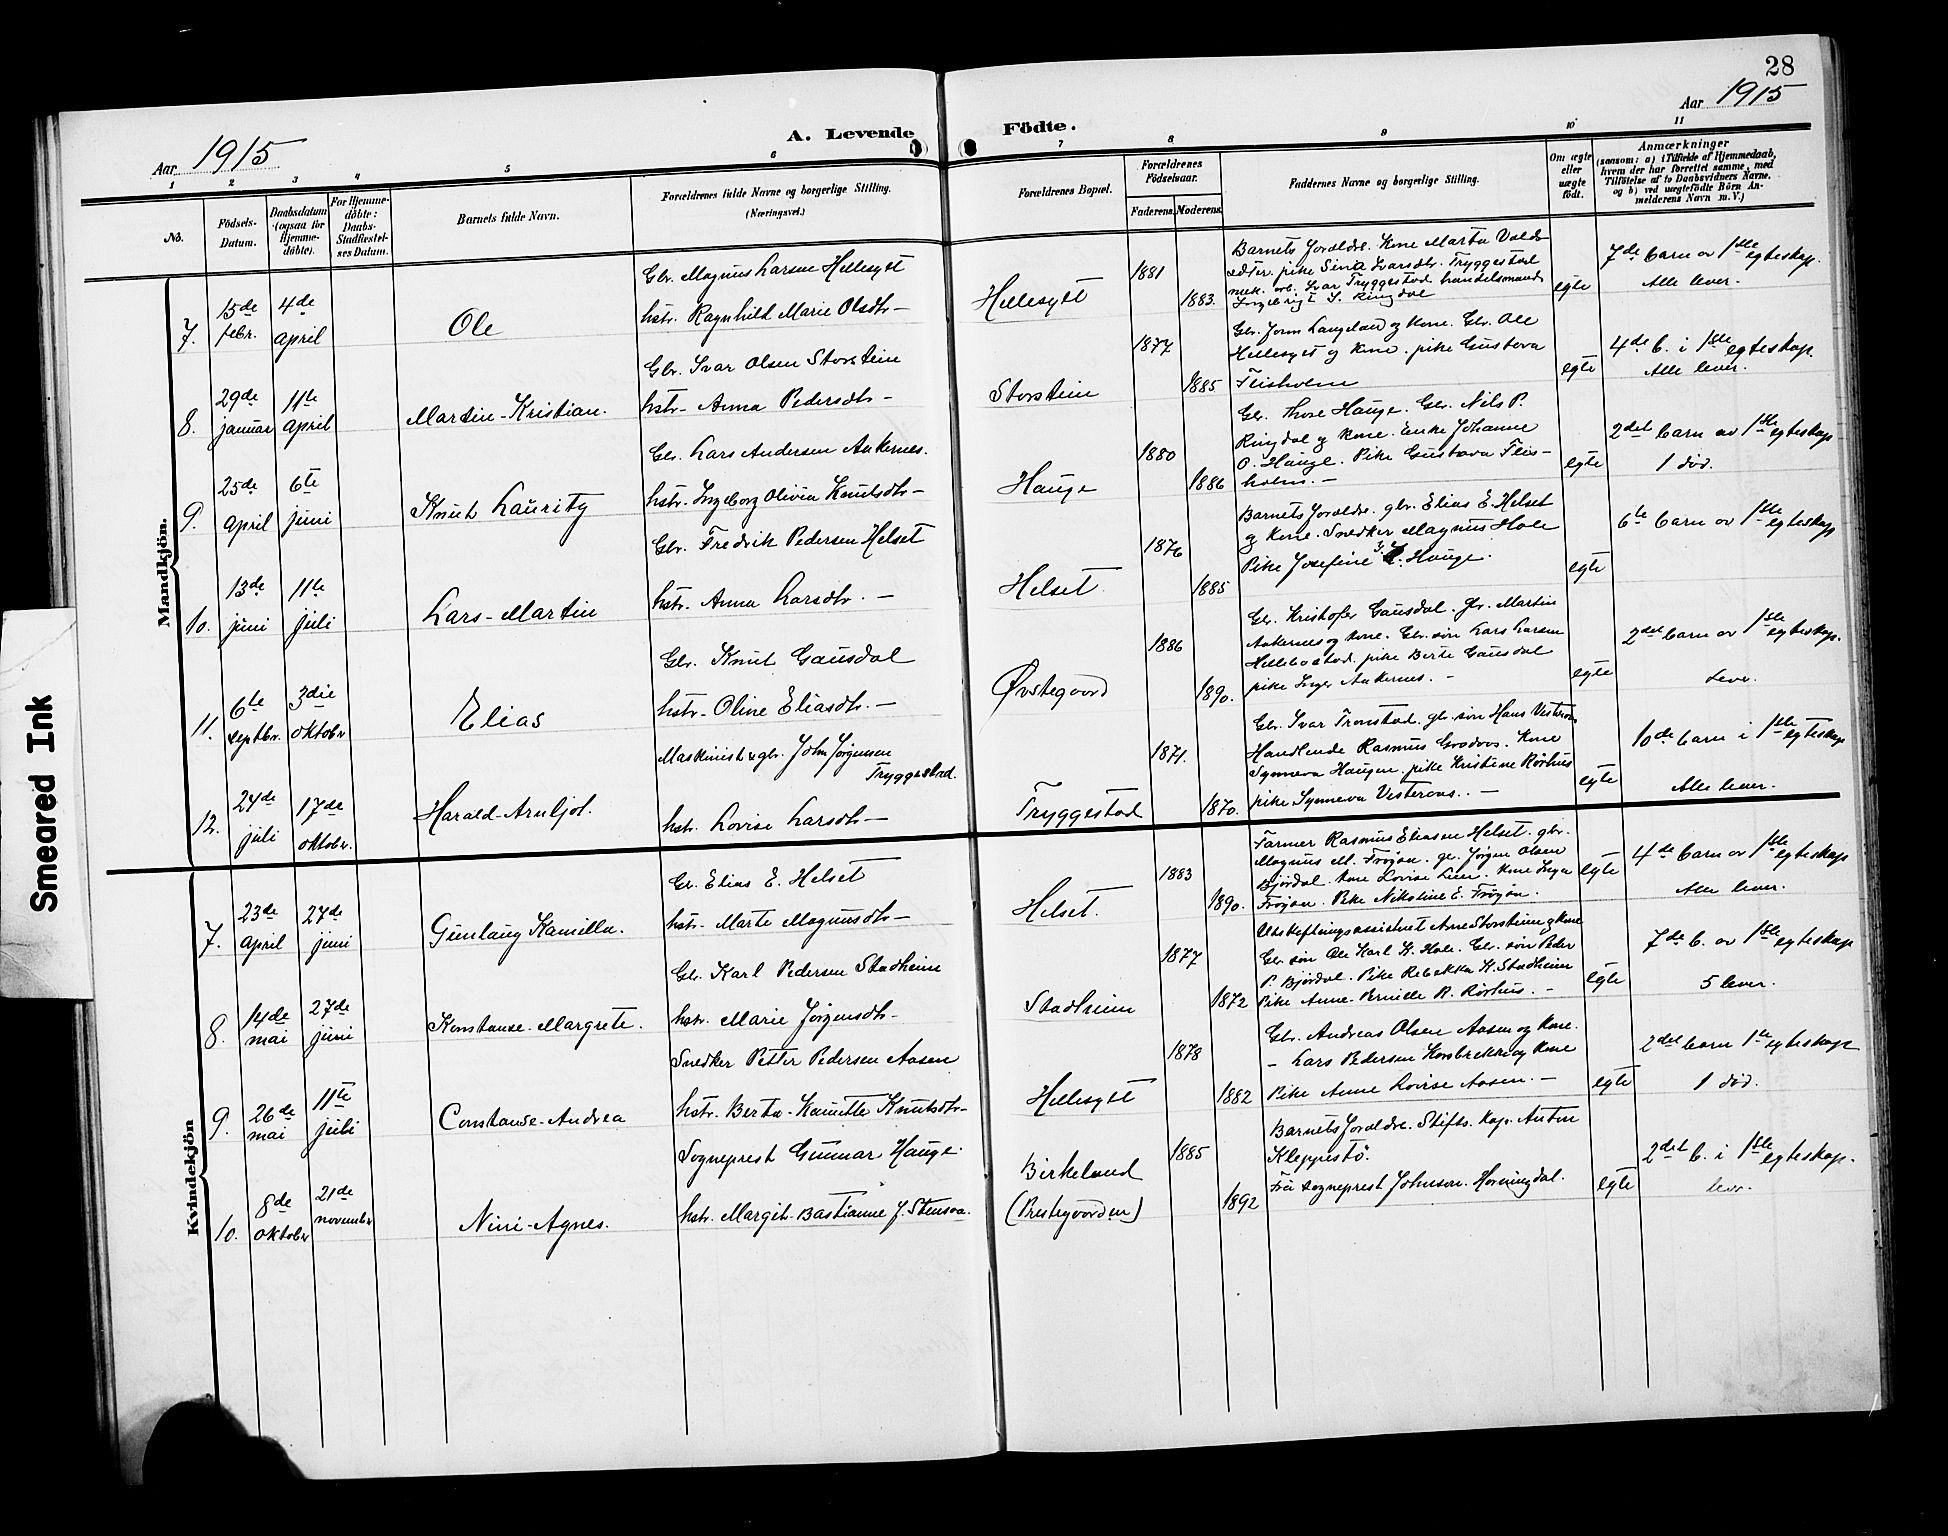 28
Aar 1915
Aar 1915
A. Levende Födte.
1 2 3 4 5 6 7 8 9 10 11
No.
Födsels-Datum.
Daabsdatum (ogsaa for Hjemme-döbte).
For Hjemme-döbte: Daabs-Stadfæstel-ses Datum.
Barnets fulde Navn.
Forældrenes fulde Navne og borgerlige Stilling.
(Næringsvei.)
Forældrenes Bopæl.
Forældrenes Födselsaar.
Faderens. Moderens.
Faddernes Navne og borgerlige Stilling.
Om ægte eller uægte födt.
Anmærkninger
(saasom: a) i Tilfælde af Hjemmedaab, hvem der har forrettet samme, med Tilföielse af to Daabsvidners Navne, og b) ved uægtefödte Börn An-melderens Navn m. V.)
Mandkjön.
7. 15de febr. 4de april
Ole
Gbr. Magnus Larsen Hellesylt
hstr. Ragnhild Marie Olsdtr. —
Hellesylt
1881
1883.
Barnets foreldre. Kone Marta Valds-
ædter. pike Sina Ivarsdtr. Tryggestad
mek. arb. Ivar Tryggestad handelsmand
Ingebrigt S. Ringdal
egte
7de barn av 1ste egteskap.
Alle lever.
8. 29de januar 11te april
Martin-Kristian.
Gbr. Ivar Olsen Storstein
hstr. Anna Pedersdtr. —
Storstein
1877
1885
Gbr. Jorn Langeland og Kone. Gbr. Ole
Hellesylt og Kone. pike Gustava
Fleisholm
egte
4de b. i 1ste egteskap.
Alle lever.
9. 25de april 6te juni
Knut Lauritz
Gbr. Lars Andersen Aakernes.
hstr. Ingeborg Olivia Knutsdtr. —
Hauge
1880
1886
Gbr. Thore Hauge. Gbr. Nils P.
Ringdal og Kone. Enke Johanne
O. Hauge. Pike Gustava Fleis-
holm. —
egte
2det barn av 1ste egteskap
1 död.
10. 13de juni 11te juli
Lars-Martin
Gbr. Fredrik Pedersen Helset
hstr. Anna Larsdtr. —
Helset
1876
1885
Barnets foreldre. gbr. Elias E. Helset
og Kone. Snedker Magnus Hole
Pike Josefine Hauge.
egte
6te barn av 1ste egteskap
11. 6te septbr. 3die oktobr
Elias
Gbr. Knut Gausdal
hstr. Oline Eliasdtr. —
Øvstegaard
1886
1890.
Gbr. Kristofer Gausdal. gbr. Martin
Aakernes og kone. Gbr. sön Lars Larsen
Hellebostad. pike Berte Gausdal
pike Inger Aakernes. —
egte
2det barn av 1ste egteskap.
lever.
12. 24de juli 17de oktobr.
Harald-Arnljot.
Maskinist & gbr. John Jørgensen
Tryggestad.
hstr. Lovise Larsdtr. —
Tryggestad
1871.
1870.
Gbr. Ivar Tronstad. gbr. sön Hans Vesteraas
Handlende Rasmus Kone
Synneva Haugen. pike Kristine Rørhus
pike Synneva Vesteraas. —
egte
10de barn i 1ste egteskap
Alle lever.
Kvindekjön
7. 23de april 27de juni
Gunlaug Kamilla.
Gbr. Elias E. Helset
hstr. Marte Magnusdtr. —
Helset.
1883
1890.
Farmer Rasmus Eliasen Helset. gbr.
Magnus M. Frøjsa. gbr. Jørgen Olsen
Bjørdal. Kone Lovise Kone Inga
Frøjsa. Pike Nikoline E. Frøjsa.
egte
4de barn av 1ste egteskap
Alle lever.
8. 14de mai 27de juni
Konstanse-Margrete.
Gbr. Karl Pedersen Stadheim
hstr. Marie Jørgensdtr. —
Stadheim
1877
1872
Utskiftningsassistent Arne Storstein og Kone
Gbr. sön Ole Karl K. Hole. Gbr. sön Peder
P. Bjørdal. Pike Rebekka K. Stadheim
Pike Anne-Pernille R. Rørhus. —
egte
7de b. av 1ste egteskap
5 lever.
9. 26de mai 11te juli
Constanse-Andrea
Snedker Petter Pedersen Aasen
hstr. Berta-Kamitte Knutsdtr. —
Hellesylt
1878
1882
Gbr. Andreas Olsen Aasen og Kone.
— Lars Pedersen Korsbrekke og Kone
Pike Anne Lovise Aasen. —
egte
2det barn 1ste egteskap
1 död.
10. 8de oktobr 21de november
Nini-Agnes.
Sogneprest Gunnar Hauge.
hstr. Margit-Bastianne J. Stensaa.
Birkeland
(Prestegaarden)
1885
1892
Barnets foreldre. Stifts. Kap. Anton
Kleppestø.
Frü sogneprest Johnson. Horningdal.
egte
2det b. i 1ste egteskap.
lever.
Smeared Ink